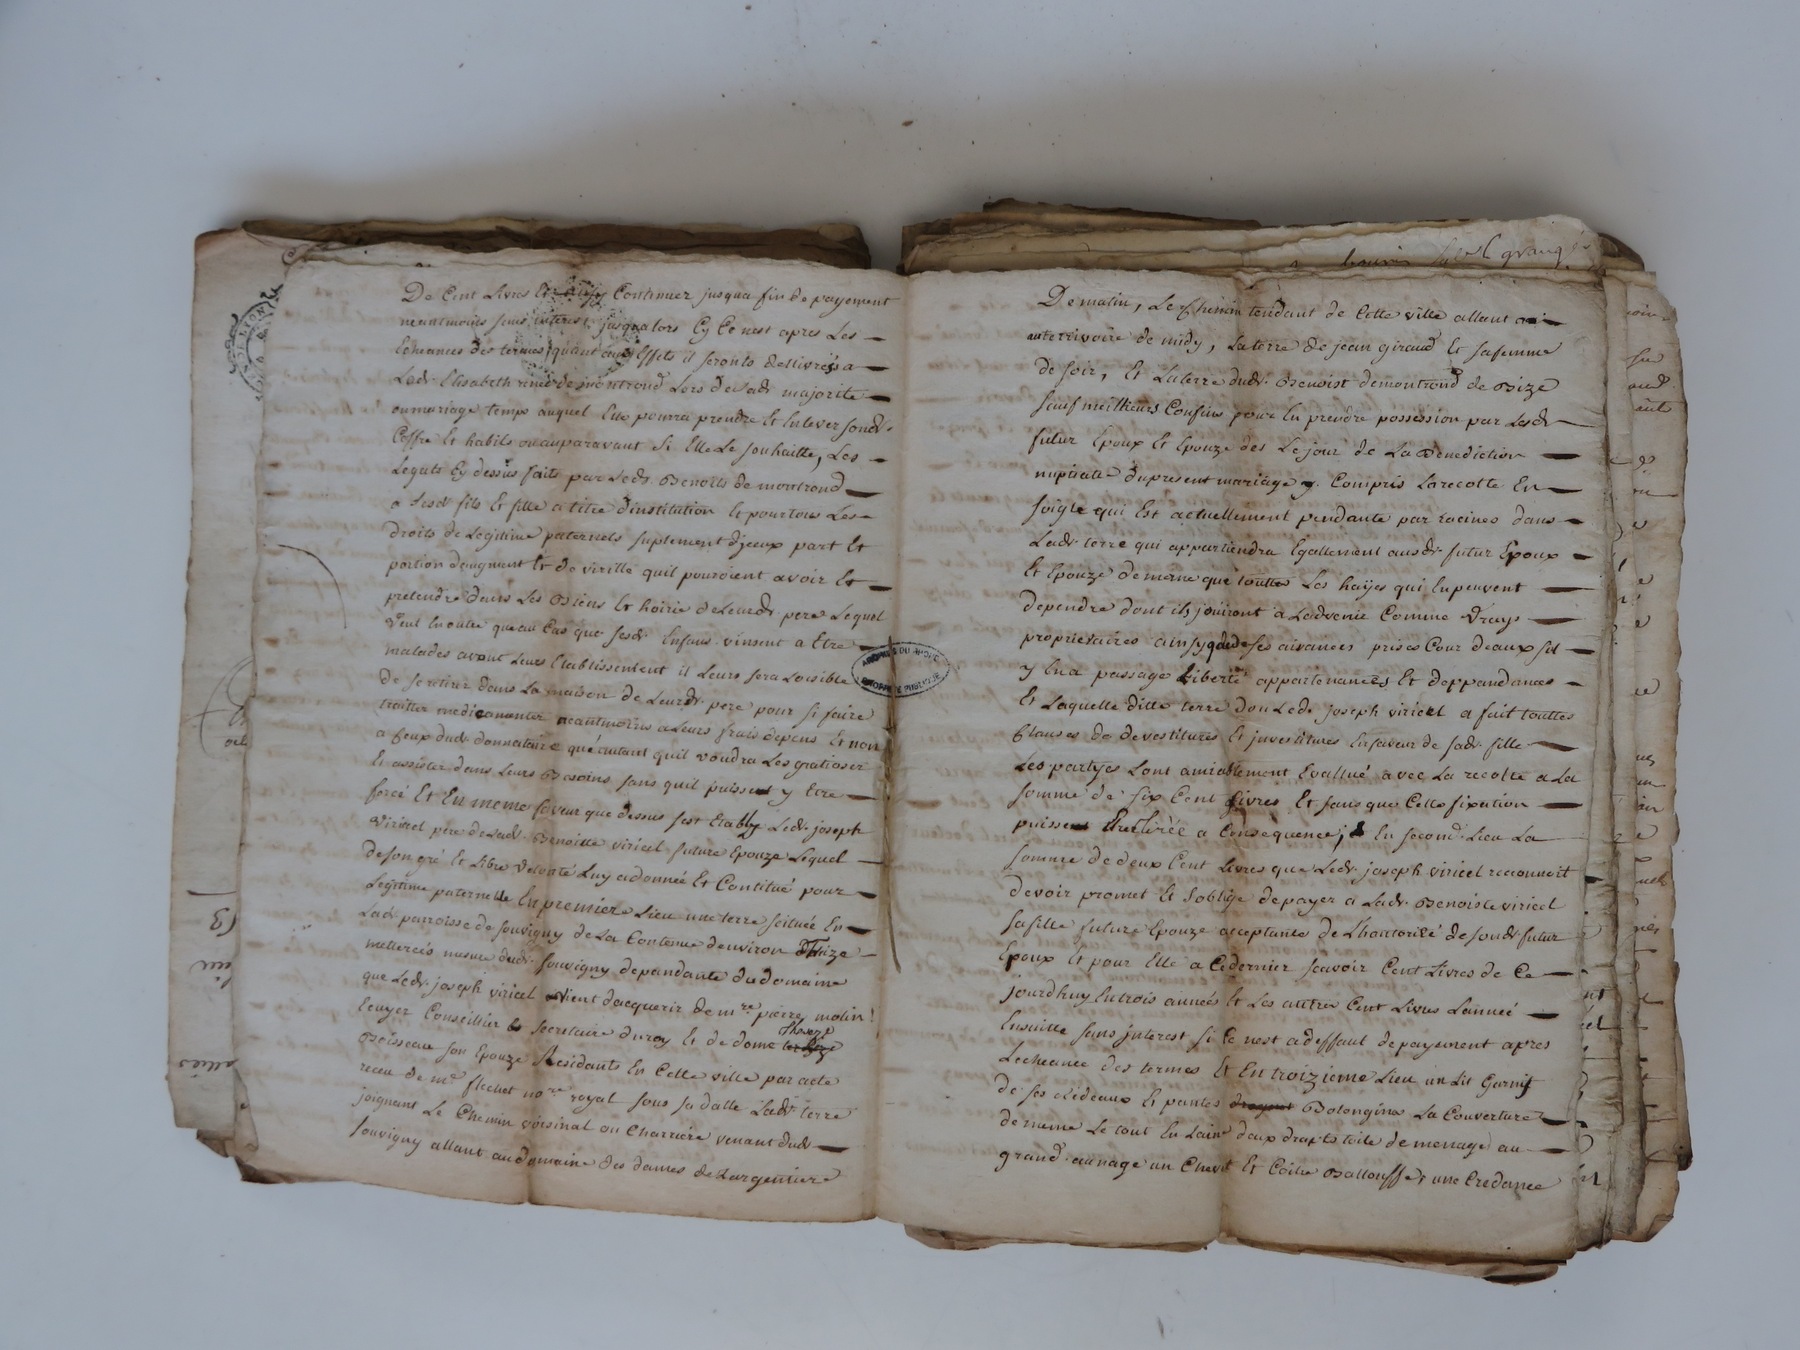 De Cent Livres Et ainsy Continuer jusqua fin de payement
neantmoins sans interest jusqualors Cy Ce nest apres Les
Echeances des termes, quant aux Effets il seronts dellivrés a
Ledt. Elisabeth rimé de montrond Lors de sadt. majorite
ou mariage temps auquel Elle pourra prendre Et Enlever sondt.
Coffre Et habits ou auparavant Si Elle Le souhaitte, Les
Leguts Cy dessus faits par Ledt. Benoits de montrond
a Sesdt. fils Et fille a titre dinstitution Et pour tous Les
Droits de Legitime paternels suplement dyceux part Et
portion daugment Et de virille quil pouroient avoir Et
pretendre dans Les Biens Et hoirie de Leurdt. pere Lequel
veut En outre quau Cas que sesdt. Enfans vinsent a Etre
malades avant Leurs Etablissement il Leurs sera Loisible
De se retirer dans La maison de Leurdt. pere pour si faire
traitter medicamenter neantmoins a Leurs frais depens Et non
a Ceux dudt. donnataire qu'autant quil voudra Les gratioser
Et assister dans Leurs Besoins sans quil puissent y Etre
forcé Et En meme faveur que dessus sest Etably Ledt. joseph
Viricel pere de Ladt. Benoitte viricel future Epouze Lequel
de son gré Et Libre volonté Luy a donnée Et Contitué pour
Legitime paternelle En premier Lieu une terre scituée En
Ladt. parroisse de souvigny de La Contenue denviron Thrize
metterées mesure dudt. souvigny dependante du domaine
que Ledt. joseph viricel vient dacquerir de mre. pierre molin
Ecuyer Conseiller Secretaire du roy Et de dame Therese
Boisseau son Epouze Residants En Cette ville par acte
receu de me. flechet nore. royal sous sa datte Ladt. terre
joignant Le Chemin voisinal ou Charriere venant dudt.
souvigny allant au domaine des dames de Largentiere
De matin, Le Chemin tendant de Cette ville allant
mterrivoire de midy, La terre de jean giraud Et sa femme
de soir, Et La terre dudt. Benoist demontrond de Bize
sauf meillieurs Confins pour En prendre possession par Lesdt.
futur Epoux Et Epouze des Le jour de La Benediction
nuptialle du present mariage y Compris La recolte En
soigle qui Est actuellement pendante par racines dans
Ladt. terre qui appartiendra Egallement ausdt. futur Epoux
Et Epouze de meme que touttes Les hayes qui En peuvent
dependre dont ils jouiront a Ladvenir Comme vrays
proprietaires ainsy que de ses aisances prises Cour deaux sil
y En a passage Liberté appartenances Et deppandances
Et Laquelle ditte terre don Ledt. joseph viricel a fait touttes
Clauses de devestitures Et investitures En faveur de sadt. fille
Les partyes Lont amiablement Evallué avec La recolte a La
somme de six Cent Livres Et sans que Cette fixation
puissent Etre tirée a Consequence; En second Lieu La
somme de deux Cent Livres que Ledt. joseph viricel reconnoit
devoir promet Et soblige de payer a Ladt. Benoiste viricel
sa fille future Epouze acceptante de Lhautorité de sondt. futur
Epoux Et pour Elle a Ce dernier scavoir Cent Livres de Ce
jourdhuy En trois années Et Les autres Cent Livres Lannée
Ensuitte sans jnterest si Ce nest a deffaut de payement apres
Lecheance des termes Et En troizieme Lieu un Lit Garnit
de ses Rideaux Et pantes Bolongina La Couverture
de meme Le tout En Laine deux drapts toile de menage au
grand aunage un Chevet Et Coitre Ballouffe, une Credance
ARCHIVES DU RHONE
PROPRIÉTÉ PUBLIQUE